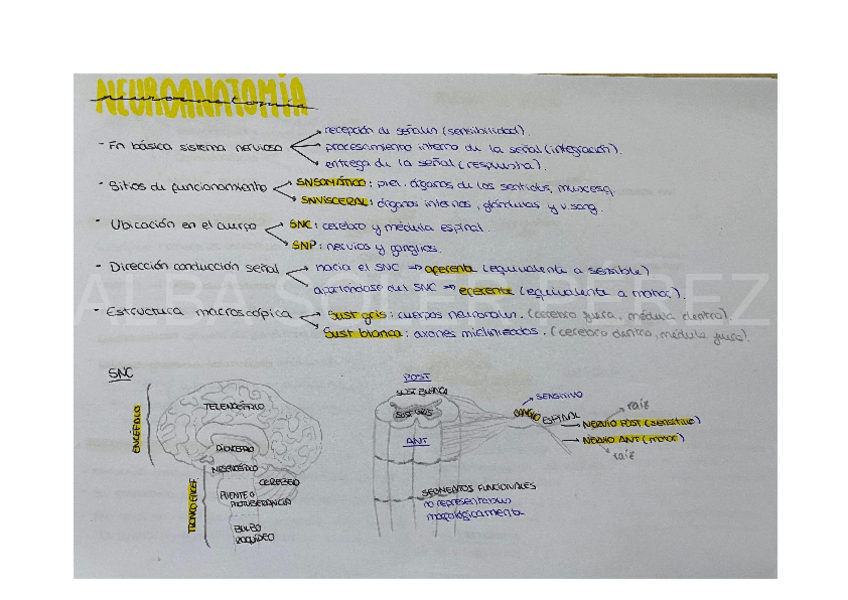 NEUROANATOMÍA
neuroanatomía
- Fn básica sistema nervioso
recepción de señales (sensibilidad).
procesamiento interno de la señal (integración).
entrega de la señal (respuesta).
- Sitios de funcionamiento
SNSOMÁTICO: piel, órganos de los sentidos, muscesq.
SNVISCERAL: órganos internos, glándulas y v.sang.
- Ubicación en el cuerpo
SNC: cerebro y médula espinal.
SNP: nervios y ganglios.
- Dirección conducción señal
hacia el SNC → aferente (equivalente a sensible)
apartándose del SNC → eferente (equivalente a motor).
- Estructura macroscópica
Sust gris: cuerpos neuronales. (cerebro fuera, médula dentro).
Sust blanca: axones mielinizados. (cerebro dentro, médula fuera).
ALBA SOLER PÉREZ
SNC
ENCÉFALO
TELENCÉFALO
DIENCEFALO
MESENCÉFALO
CEREBELO
TRONCOENCEF.
PUENTE O
PROTUBERANCIA
BULBO
RAQUÍDEO
POST
SUST BLANCA
SUST GRIS
ANT
SENSITIVO
GANGLIO ESPINAL
raíz
NERVIO POST (sensitivo)
NERVIO ANT (motor)
raíz
SEGMENTOS FUNCIONALES
no representados
morfológicamente